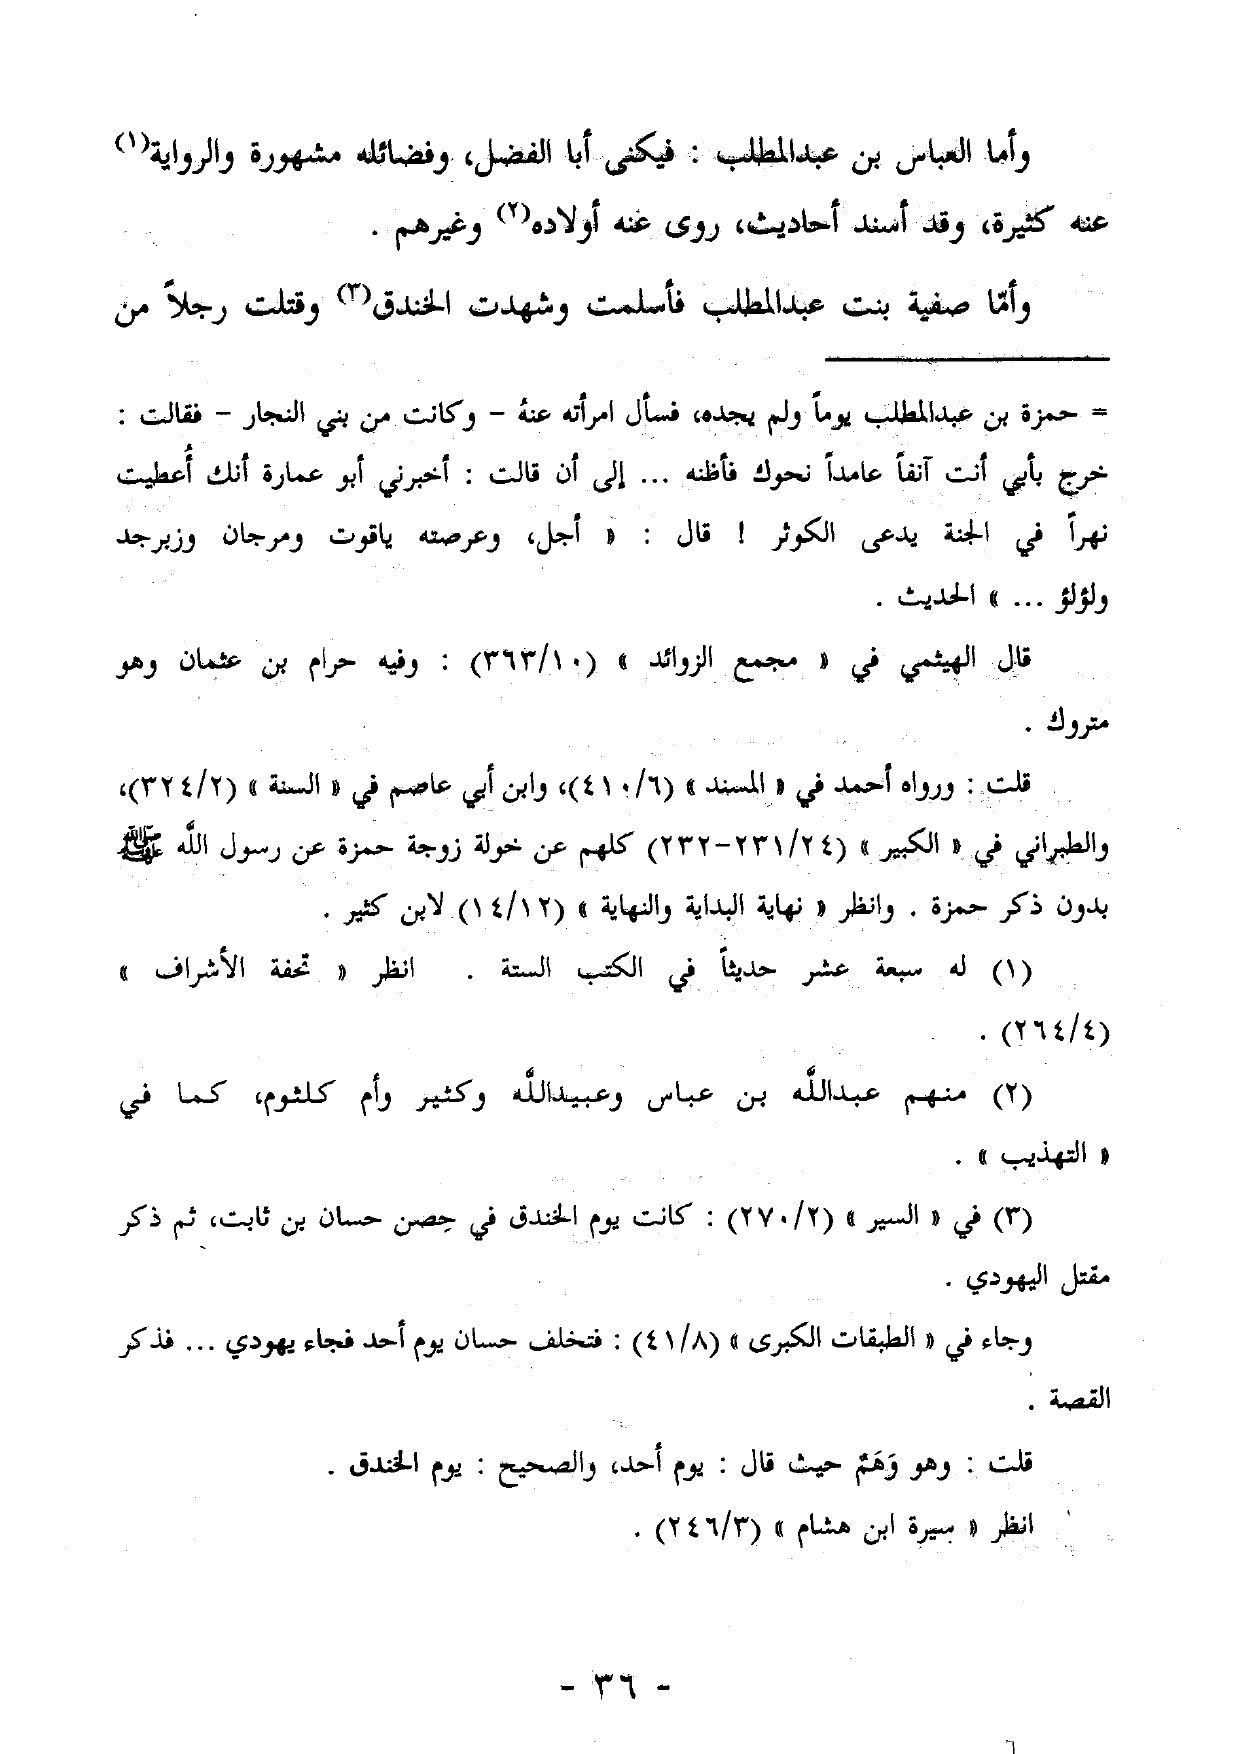 وأما العباس بن عبدالمطلب : فيكنى أبا الفضل، وفضائله مشهورة والرواية(١)
عنه كثيرة، وقد أسند أحاديث، روى عنه أولاده(٢) وغيرهم .
وأمّا صفية بنت عبدالمطلب فأسلمت وشهدت الخندق(٣) وقتلت رجلاً من
= حمزة بن عبدالمطلب يوماً ولم يجده، فسأل امرأته عنهُ – وكانت من بني النجار – فقالت :
خرج بأبي أنت آنفاً عامداً نحوك فأظنه ... إلى أن قالت : أخبرني أبو عمارة أنك أُعطيت
نهراً في الجنة يدعى الكوثر ! قال : « أجل، وعرصته ياقوت ومرجان وزبرجد
ولؤلؤ ... » الحديث .
قال الهيثمي في « مجمع الزوائد » (٣٦٣/١٠) : وفيه حرام بن عثمان وهو
متروك .
قلت : ورواه أحمد في « المسند » (٤١٠/٦)، وابن أبي عاصم في « السنة » (٣٢٤/٢)،
والطبراني في « الكبير » (٢٣١/٢٤-٢٣٢) كلهم عن خولة زوجة حمزة عن رسول اللَّه ﷺ
بدون ذكر حمزة . وانظر « نهاية البداية والنهاية » (١٤/١٢) لابن كثير .
(١) له سبعة عشر حديثاً في الكتب الستة . انظر « تحفة الأشراف »
(٢٦٤/٤) .
(٢) منهم عبداللَّه بن عباس وعبيداللَّه وكثير وأم كلثوم، كما في
« التهذيب » .
(٣) في « السير » (٢٧٠/٢) : كانت يوم الخندق في حِصن حسان بن ثابت، ثم ذكر
مقتل اليهودي .
وجاء في « الطبقات الكبرى » (٤١/٨) : فتخلف حسان يوم أحد فجاء يهودي ... فذكر
القصة .
قلت : وهو وَهَمٌ حيث قال : يوم أحد، والصحيح : يوم الخندق .
انظر « سيرة ابن هشام » (٢٤٦/٣) .
- ٣٦ -